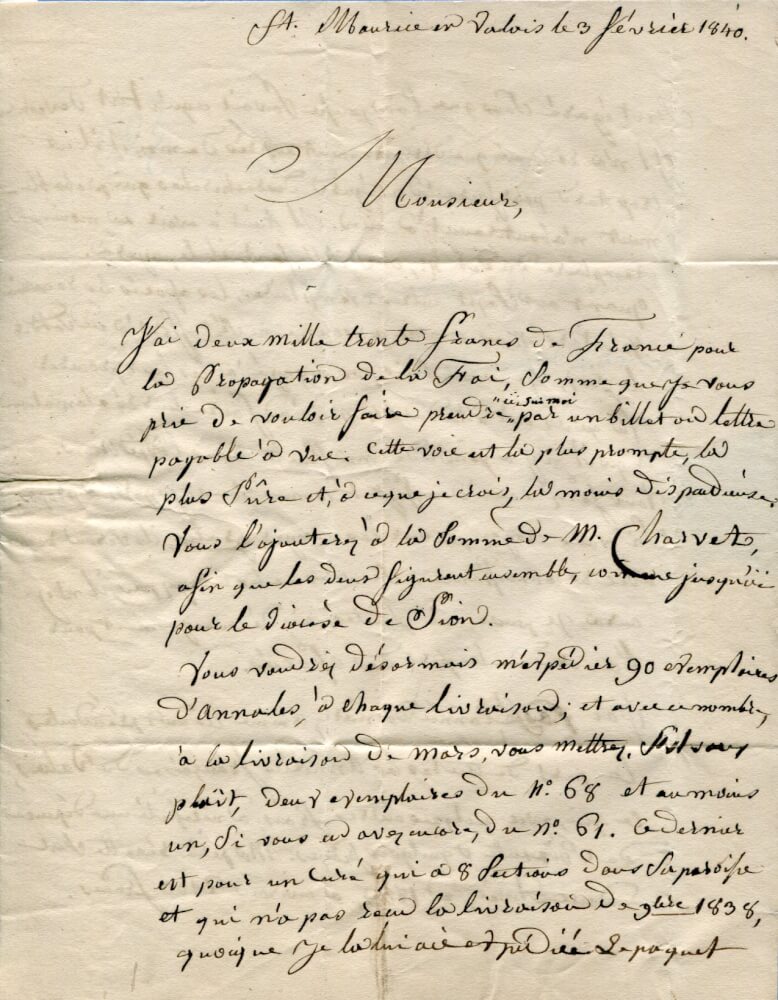 St. Maurice en Valais le 3 février 1840.
Monsieur,
J'ai deux mille trente francs de France pour
la Propagation de la Foi, somme que je vous
prie de vouloir faire prendre "ici sur moi" par un billet ou lettre
payable à vue. Cette voie est la plus prompte, la
plus sûre et, à ce que je crois, la moins dispendieuse.
Vous l'ajouterez à la somme de M. Charvet,
afin que les deux figurent ensemble, comme jusqu'ici
pour le diocèse de Sion.
Vous voudrez désormais m'expédier 90 exemplaires
d'annales, à chaque livraison; et avec ce nombre,
à la livraison de mars, vous mettrez, s'il vous
plait, deux exemplaires du N.º 68 et au moins
un, si vous en avez encore, du n.º 61. Ce dernier
est pour un Curé qui a 8 Sections dans sa paroisse
et qui n'a pas reçu la livraison de 9bre 1838,
quoique je la lui aie expédiée. Le paquet